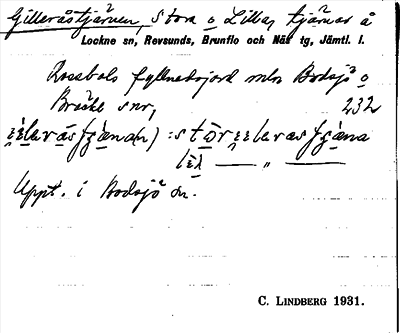 Gilleråstjärnen, Stora o Lilla, tjärnar å
Lockne sn, Revsunds, Brunflo och Näs tg, Jämtl. l.
Rossbols fyllnadsjord mln Bodsjö o
Bräcke snr, 232
Uppt. i Bodsjö sn.
C. LINDBERG 1931.